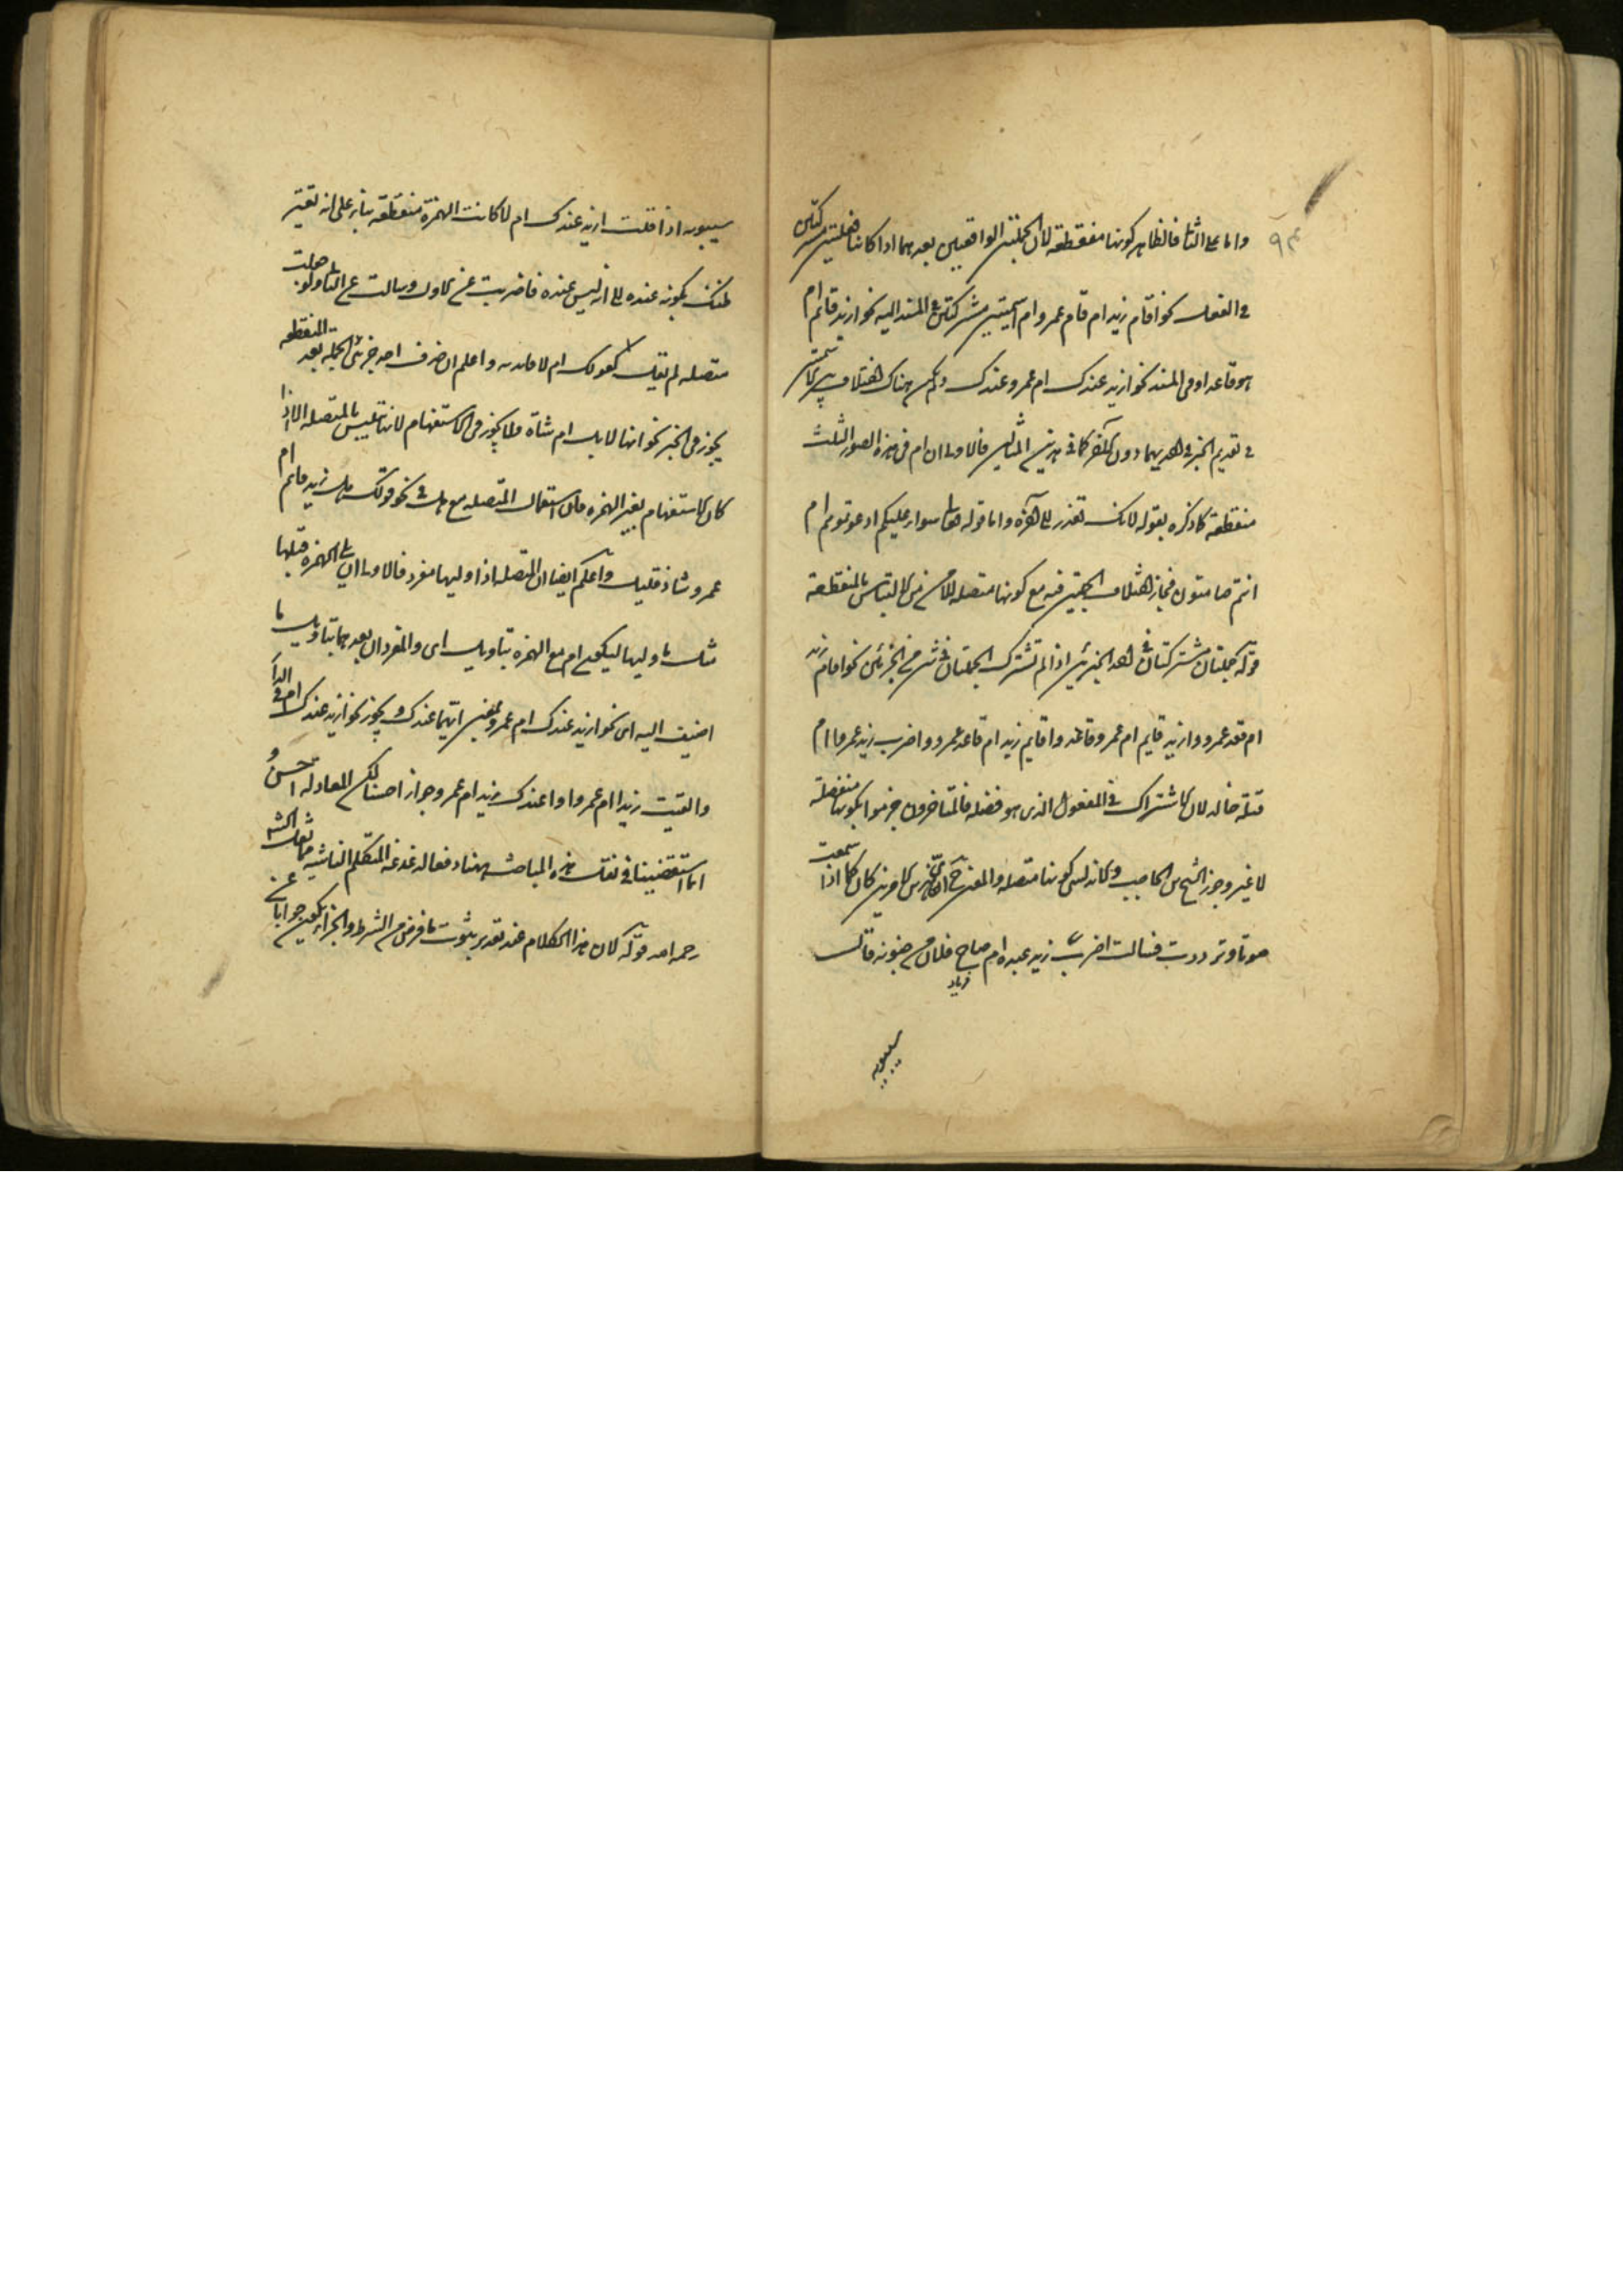 واما على الثانى فالظاهر كونها منقطعة لان الجملتين الواقعتين بعدهما اذا كانتا فعليتين مشتركتين
فى الفعل نحو اقام زيد ام قام عمرو ام اسميتين مشتركتين فى المسند اليه نحو ازيد قائم ام
هو قاعد او فى المسند نحو ازيد عندك ام عمرو عندك ولم يكن هناك اختلاف بين الاسميتين
فى تقديم الخبر فى احديهما دون الاخر كما فى هذين المثالين فالاولى ان ام فى هذه الصور الثلث
منقطعة كما ذكره بقوله لانك تقدر على واما قوله تعالى سواء عليكم ادعوتموهم ام
انتم صامتون فجاز اختلاف الجملتين فيه مع كونها متصلة للامن من الالتباس بالمنقطعة
قوله جملتان مشتركتان فى احد الجزئين اذا لم تشترك الجملتان فى شىء من الجزئين نحو اقام زيد
ام قعد عمرو وازيد قايم ام عمرو قاعد واقايم زيد ام قاعد عمرو واضرب زيد عمروا ام
قتله خالد لان الاشتراك فى المفعول الذى هو فضلة فالمتاخرون جزموا بكونها منفصلة
لا غير وجوز الشيخ ابن الحاجب والاندلسى كونها متصلة والمعنى ح اى الامرين كان كما اذا سمعت
صوتا وترددت فسالت اضرب زيد عبده ام صاح فلان من جنونه قال
فرياد
سيبويه
سيبويه اذا قلت ازيد عندك ام لا كانت الهمزة منقطعة بناء على انه تغير
ظنك بكونه عنده الى انه ليس عنده فاضربت عن الاول وسالت عن الثانى ولو جعلت
متصلة لم يقل لا كقولك ام لا واعلم ان حرف احد جزئى الجملة بعد المنقطعة
يجوز فى الخبر نحو انها لابل ام شاة ولا يجوز فى الاستفهام لانها تلتبس بالمتصلة الا اذا
كان الاستفهام بغير الهمزة فان استعمال المتصلة مع هل فى نحو قولك هل زيد قائم ام
عمرو شاذ قليل واعلم ايضا ان المتصلة اذا وليها مفرد فالاولى ان يلى الهمزة قبلها
مثل ما وليها ليكون ام مع الهمزة بتاويل اى والمفردان بعدهما بتاويل ما
اضيف اليه اى نحو ازيد عندك ام عمرو بمعنى ايهما عندك ويجوز نحو ازيد عندك ام فى الدار
والقيت زيدا ام عمروا واعندك زيد ام عمرو جوازا حسنا لكن المعادلة احسن
انا استقصينا فى نقل هذه المباحث ههنا دفعا لدغدغة المتكلم الناشية مما نقله الش
رحمه الله قوله لان هذا الكلام عند تقدير ثبوت ما فرض من الشرط والجزاء يكون جوابا عن